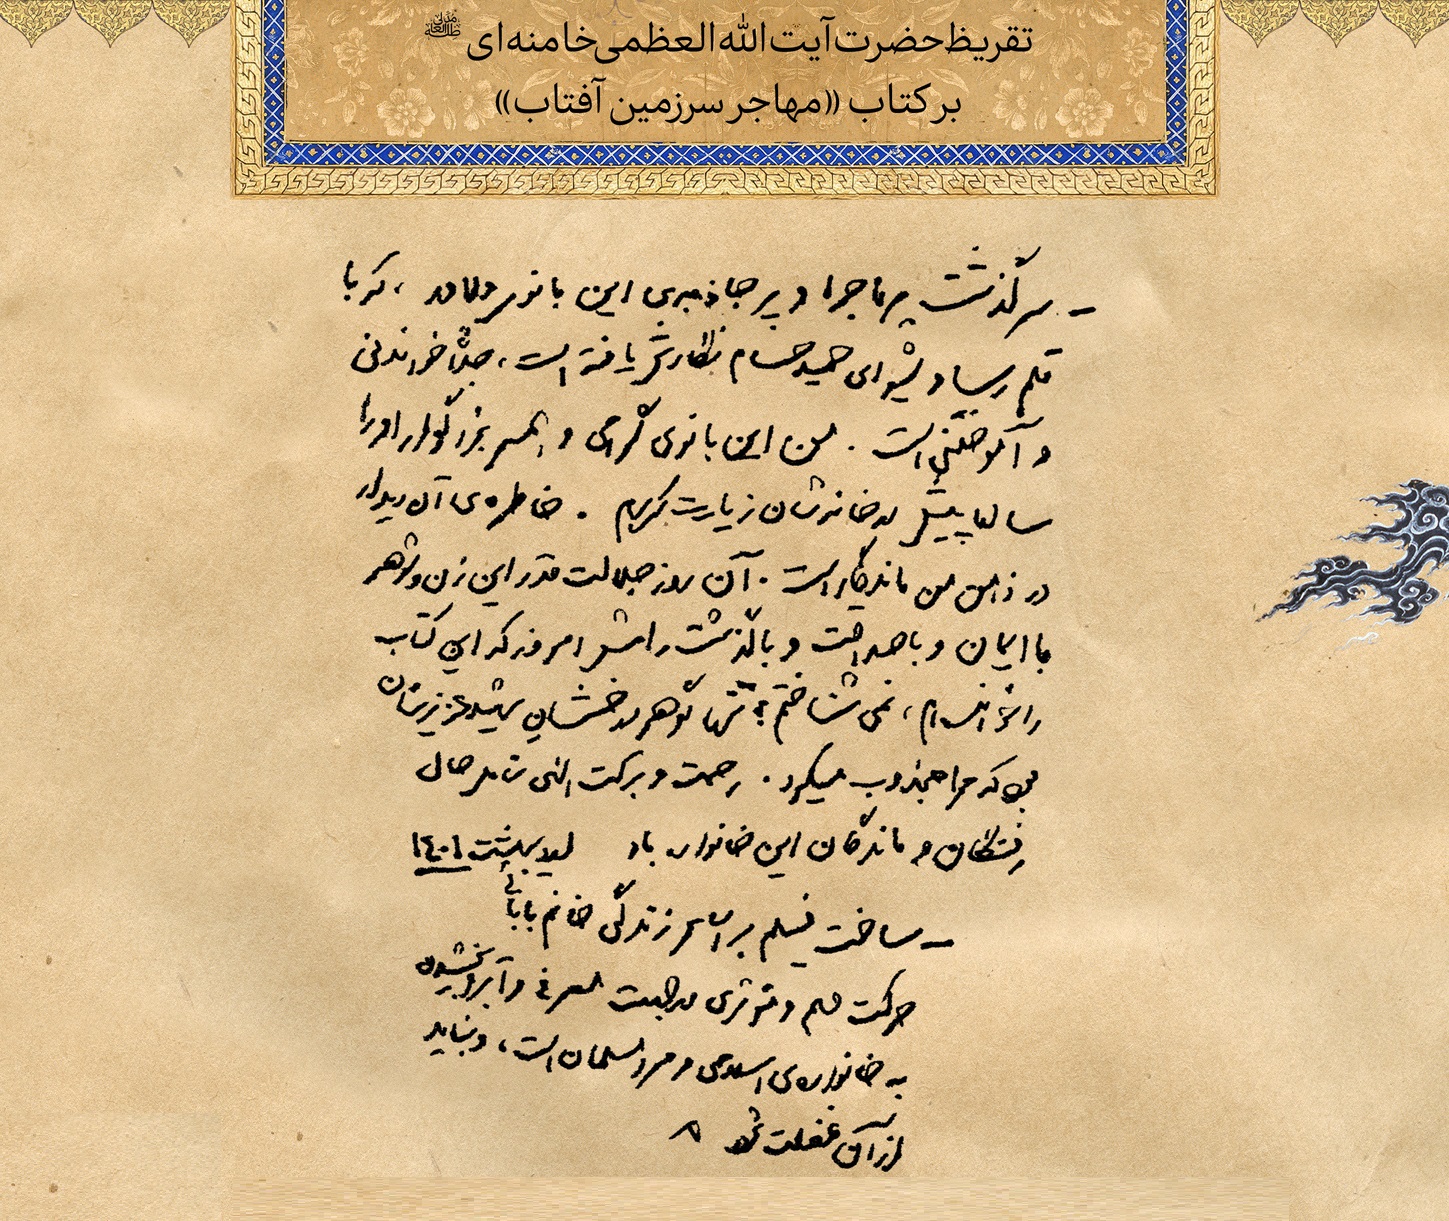 تقریظ حضرت آیت‌الله العظمی خامنه‌ای مدظله‌العالی
بر کتاب «مهاجر سرزمین آفتاب»
- سرگذشت پرماجرا و پرجاذبه‌ی این بانوی دلاور، که با
قلم رسا و شیوای حمید حسام نگارش یافته است، جدّاً خواندنی
و آموختنی است. من این بانوی گرامی و همسر بزرگوار او را
سالها پیش در خانه‌شان زیارت کردم. خاطره‌ی آن دیدار
در ذهن من ماندگار است. آن روز جلالت قدر این زن و شوهر
با ایمان و با صداقت و با گذشت را مثل امروز که این کتاب
را خوانده‌ام، نمی‌شناختم؛ تنها گوهر درخشان شهید عزیزشان
بود که مرا مجذوب میکرد. رحمت و برکت الهی شامل حال
رفتگان و ماندگان این خانواده باد اردیبهشت ۱۴۰۱
- ساخت فیلم بر اساس زندگی خانم بابائی
حرکت مهم و مؤثری در جهت معرفی و آبرو بخشیدن
به خانواده‌ی اسلامی و مرد مسلمان است، و نباید
از آن غفلت شود